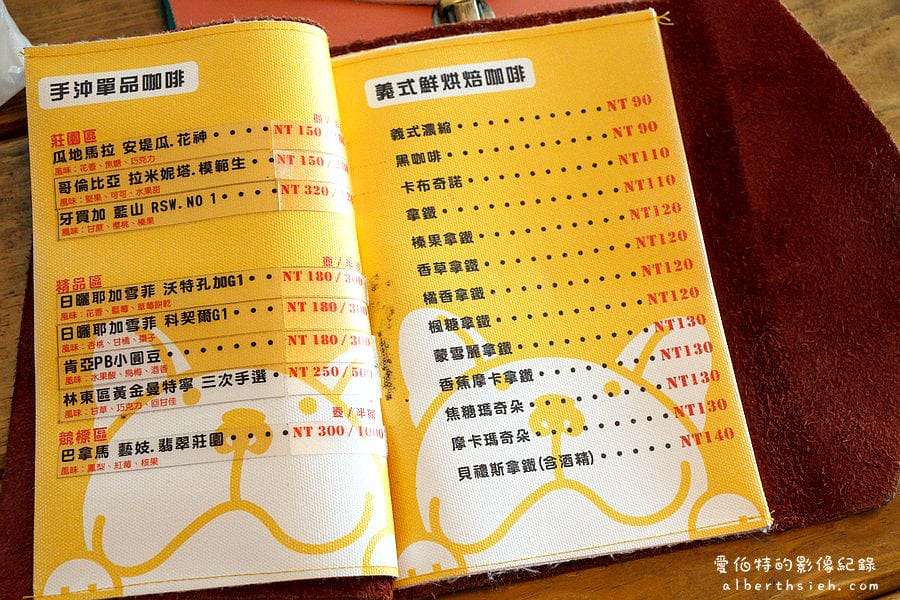 手沖單品咖啡
莊園區
瓜地馬拉 安堤瓜.花神 NT 150/
風味:花香、焦糖、巧克力
哥倫比亞 拉米妮塔.模範生 NT 150/
風味:堅果、可可、水果甜
牙買加 藍山 RSW.NO 1 NT 320/
風味:甘蔗、櫻桃、榛果
精品區 壺/半
日曬耶加雪菲 沃特孔加G1 NT 180/300
風味:花香、藍莓、草莓餅乾
日曬耶加雪菲 科契爾G1 NT 180/30
風味:杏桃、甘橘、棗子
肯亞PB小圓豆 NT 180/300
風味:水果酸、烏梅、酒香
林東區黃金曼特寧 三次手選 NT 250/500
風味:甘草、巧克力、回甘佳
競標區 壺/半磅
巴拿馬 藝妓.翡翠莊園 NT 300/1000
風味:鳳梨、紅莓、核果
義式鮮烘焙咖啡
義式濃縮 NT 90
黑咖啡 NT 90
卡布奇諾 NT110
拿鐵 NT110
榛果拿鐵 NT120
香草拿鐵 NT120
橘香拿鐵 NT120
楓糖拿鐵 NT120
蒙雪麗拿鐵 NT130
香蕉摩卡拿鐵 NT130
焦糖瑪奇朵 NT130
摩卡瑪奇朵 NT130
貝禮斯拿鐵(含酒精) NT140
愛伯特的影像紀錄
alberthsieh.com